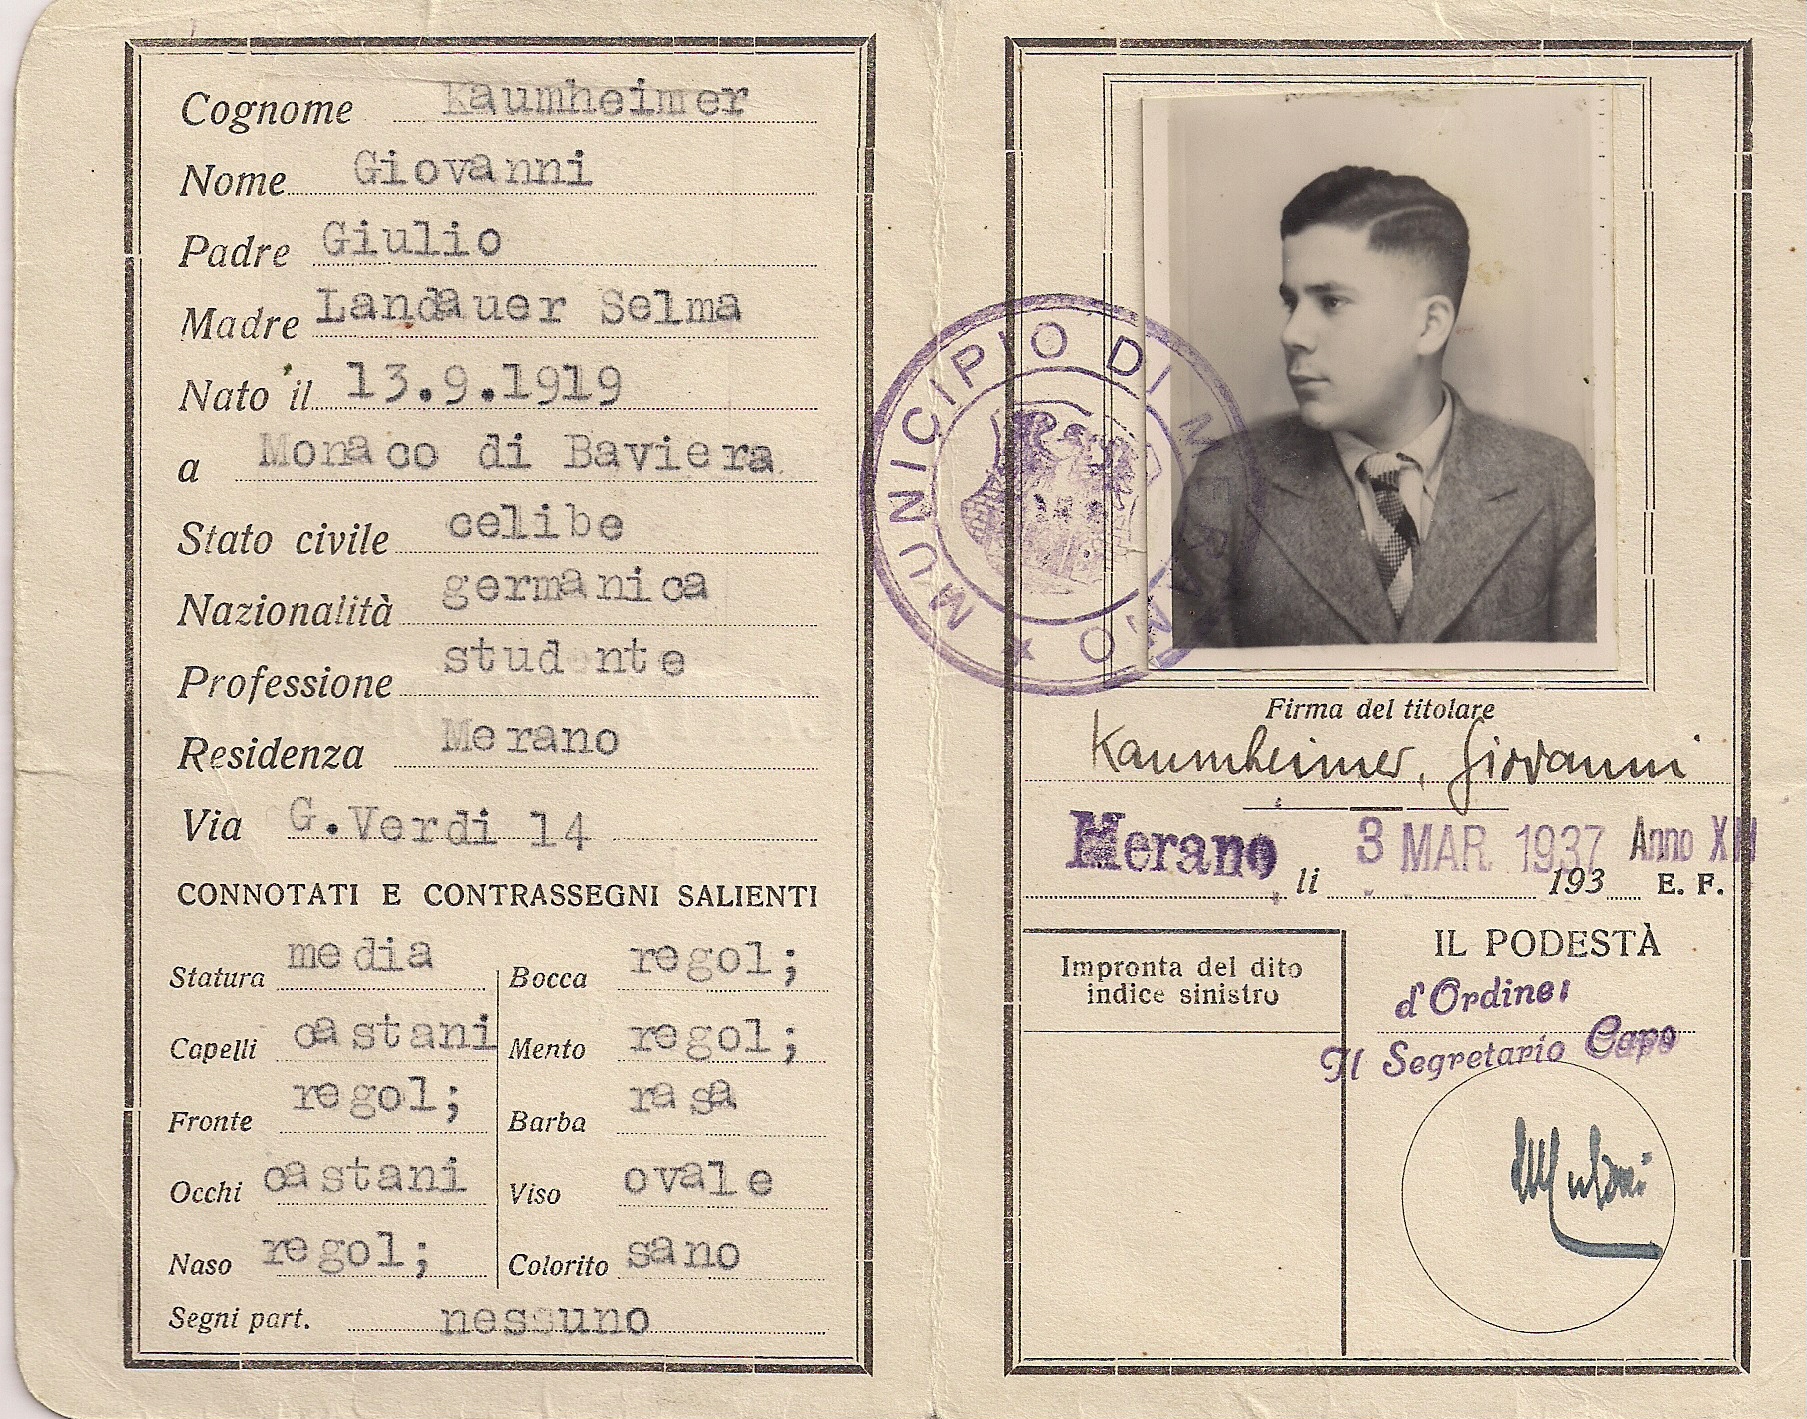 Cognome Kaumheimer
Nome Giovanni
Padre Giulio
Madre Landauer Selma
Nato il 13.9.1919
a Monaco di Baviera
Stato civile celibe
Nazionalità germanica
Professione studente
Residenza Merano
Via G.Verdi 14
CONNOTATI E CONTRASSEGNI SALIENTI
Statura media
Capelli castani
Fronte regol;
Occhi castani
Naso regol;
Bocca regol;
Mento regol;
Barba rasa
Viso ovale
Colorito sano
Segni part. nessuno
MUNICIPIO DI MERANO
Firma del titolare
Kaumheimer, Giovanni
Merano li 3 MAR 1937 193 Anno E. F.
Impronta del dito
indice sinistro
IL PODESTÀ
d'Ordine:
Il Segretario Capo